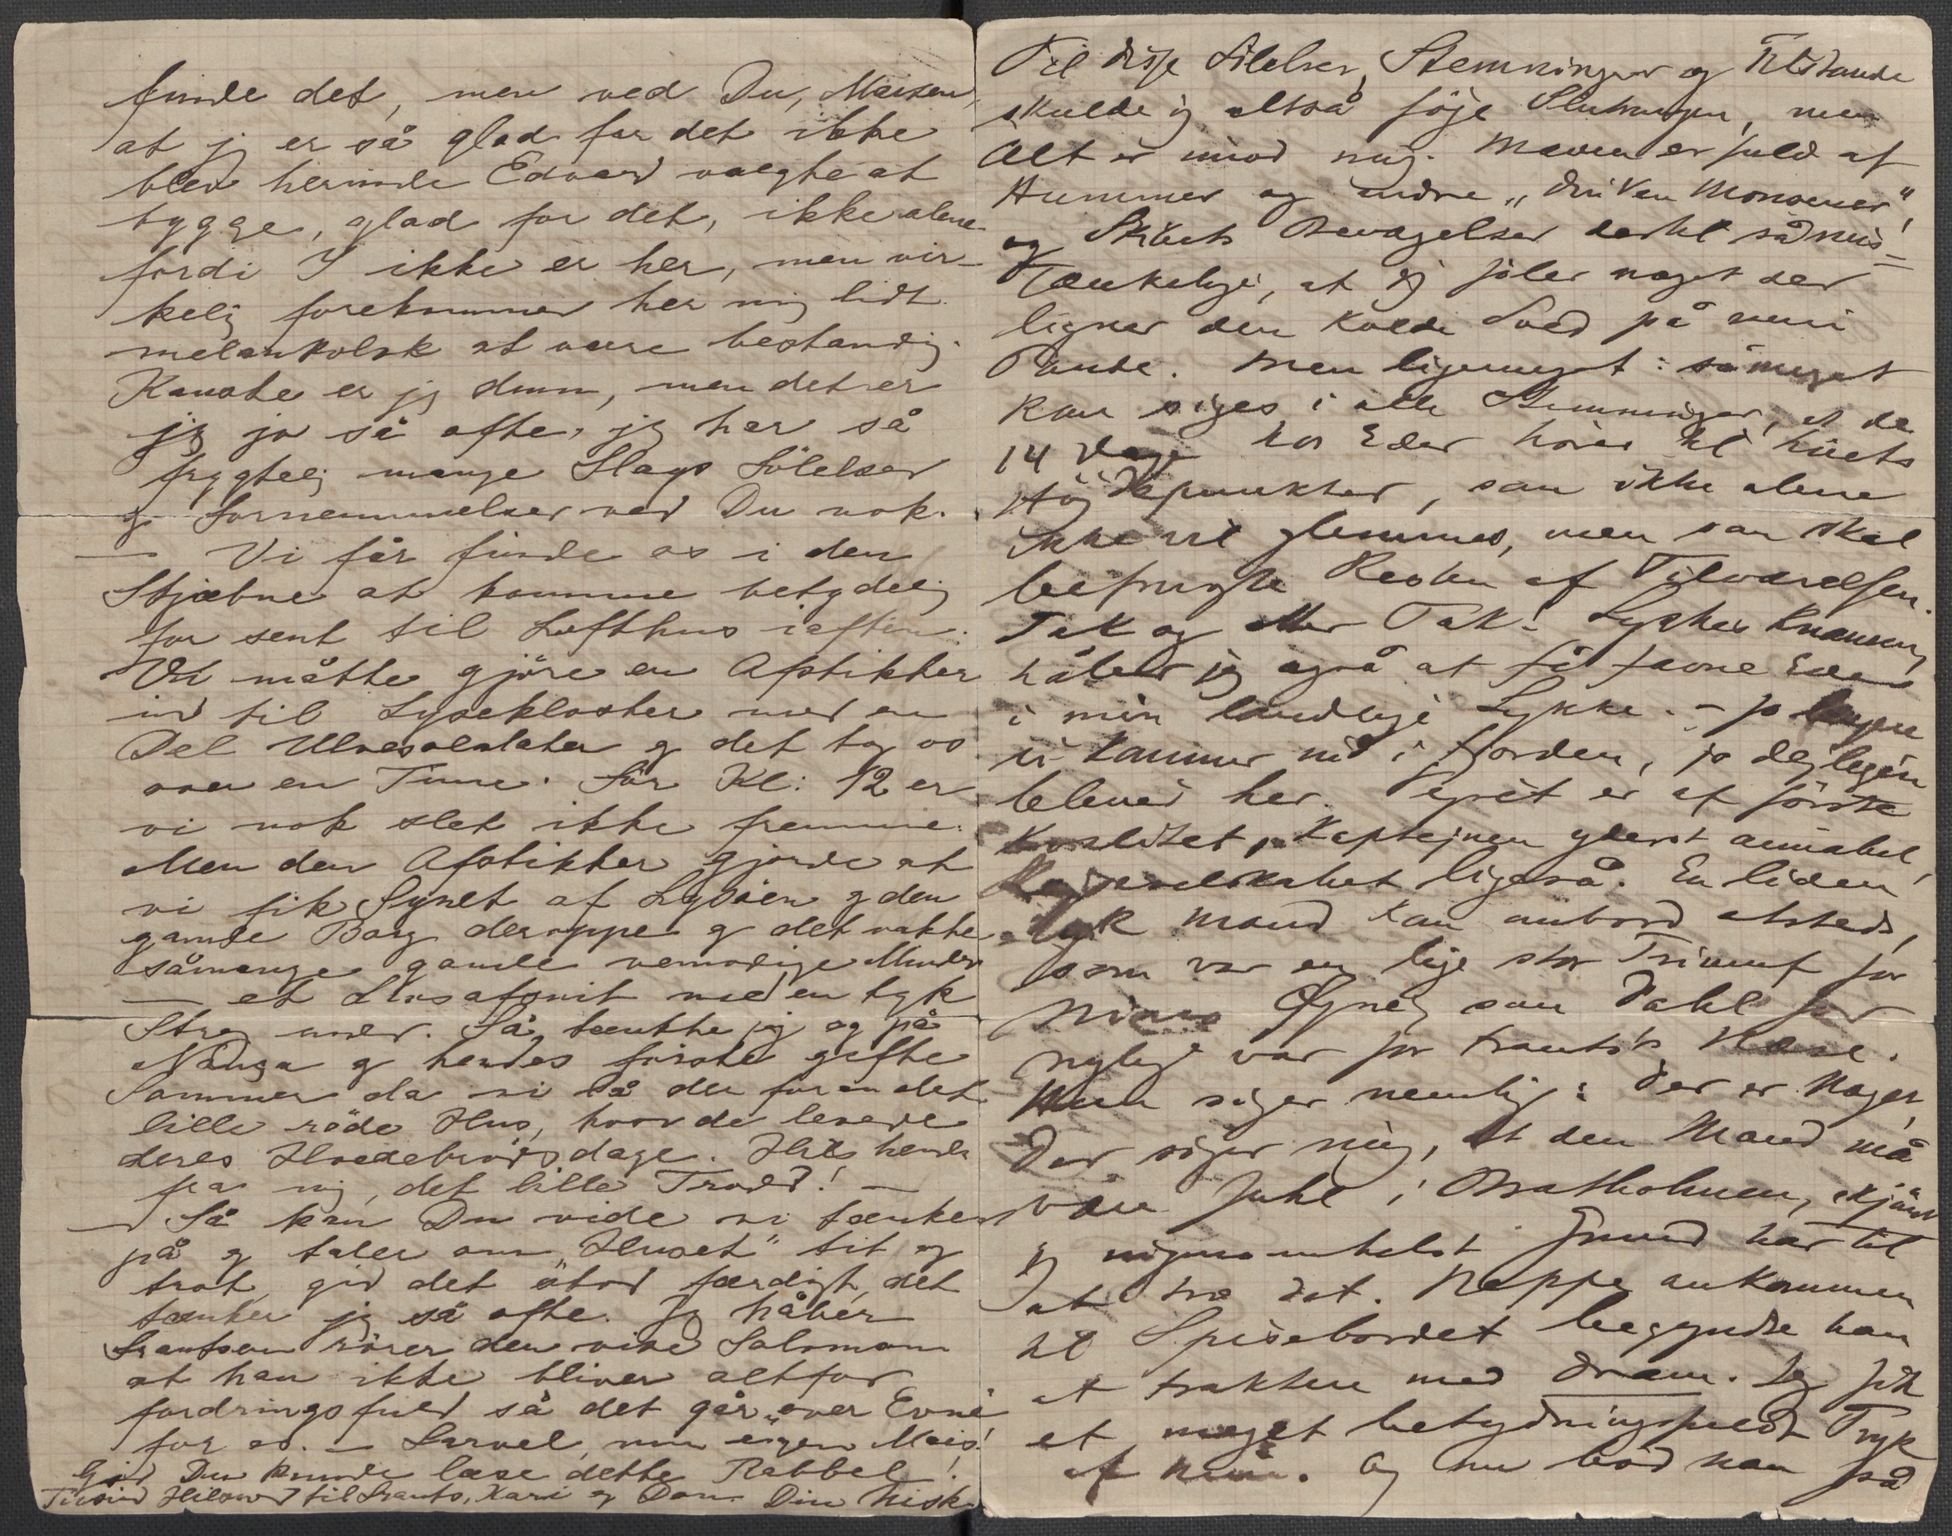 finde det, men ved Du, Maisen,
at jg er så glad for det ikke
blev herinde Edvard valgte at
bygge, glad for det, ikke alene
fordi I ikke er her, men vir-
kelig forekommer her mig lidt
melankolsk at være bestandig.
Kanske er jg dum, men det er
jg jo så ofte, jg har så
frygtelig mange Slags Fölelser
og Fornemmelser ved Du nok.
— Vi får finde os i den
Skjæbne at komme betydelig
for sent til Lofthus iaften.
Vi måtte gjöre en Afstikker
ind til Lysekloster med en
Del Ulvesalater g det tog os
over en Time. För Kl: 12 er
vi nok slet ikke fremme.
Men den Afstikker gjorde at
vi fik Synet af Lysöen g den
gamle Borg deroppe g det vakte
såmange gamle vemodige Minder
— et med en tyk
Streg under. Så tænkte jg og på
Nanga g hendes förste gifte
Sommer da vi lå der foran det
lille röde Hus, hvor de levede
deres Hvedebrödsdage. Hils hende
fra mig, det lille Trold! —
— Så kan Du vide vi tænker
på g taler om „Huset" tit og
trat, gid det stod færdigt, det
tænker jg så ofte. Jg håber
Frantsen rörer den vise Salomon
at han ikke bliver altfor
fordringsfuld så det går „over Evne"
for os. — Farvel, min egen Mais!
Gid Du kunde læse dette Rabbel!
Tusind Hilsener til Frants, Kari g Dan Din Nisk
Til disse Fölelser, Stemninger og Tilstande
skulde jg altså föje Slutningen, men
Alt er imod mig. Maven er fuld af
Hummer og andre „
og Skibets Bevægelser dertil såmis-
tænkelige, at jg föler noget der
ligner den kolde Sved på min
Pande. Men ligemeget: såmeget
kan siges i alle Stemninger, at de
14 Dage hos Eder hörer til Livets
Höjdepunkter, som ikke alene
ikke vil glemmes, men som skal
befrugte Resten af Tilværelsen.
Tak og atter Tak!
håber jg også at få favne Eder
i min landlige Lykke. — Jo længere
vi kommer ind i Fjorden, jo dejligere
blever her. Vejret er af förste
Kvalitet, Kaptejnen yderst aimabel,
Rejseselskabet ligeså. En liden
tyk Mand kom ombord etsteds,
som var en lige stor Triumf for
Ninas Öjne, som Dahl for
nylig var for Frants's Næse.
Hun siger nemlig: Der er Noget,
Der siger mig, at den Mand må
være Juhl i Bratholmen, skjönt
jg ingensomhelst Grund har til
at tro det. Neppe ankommen
til Spisebordet begyndte han
at traktere med Dram. Jg fik
et meget betydningsfuldt Tryk
af Nina. Og nu bad han på